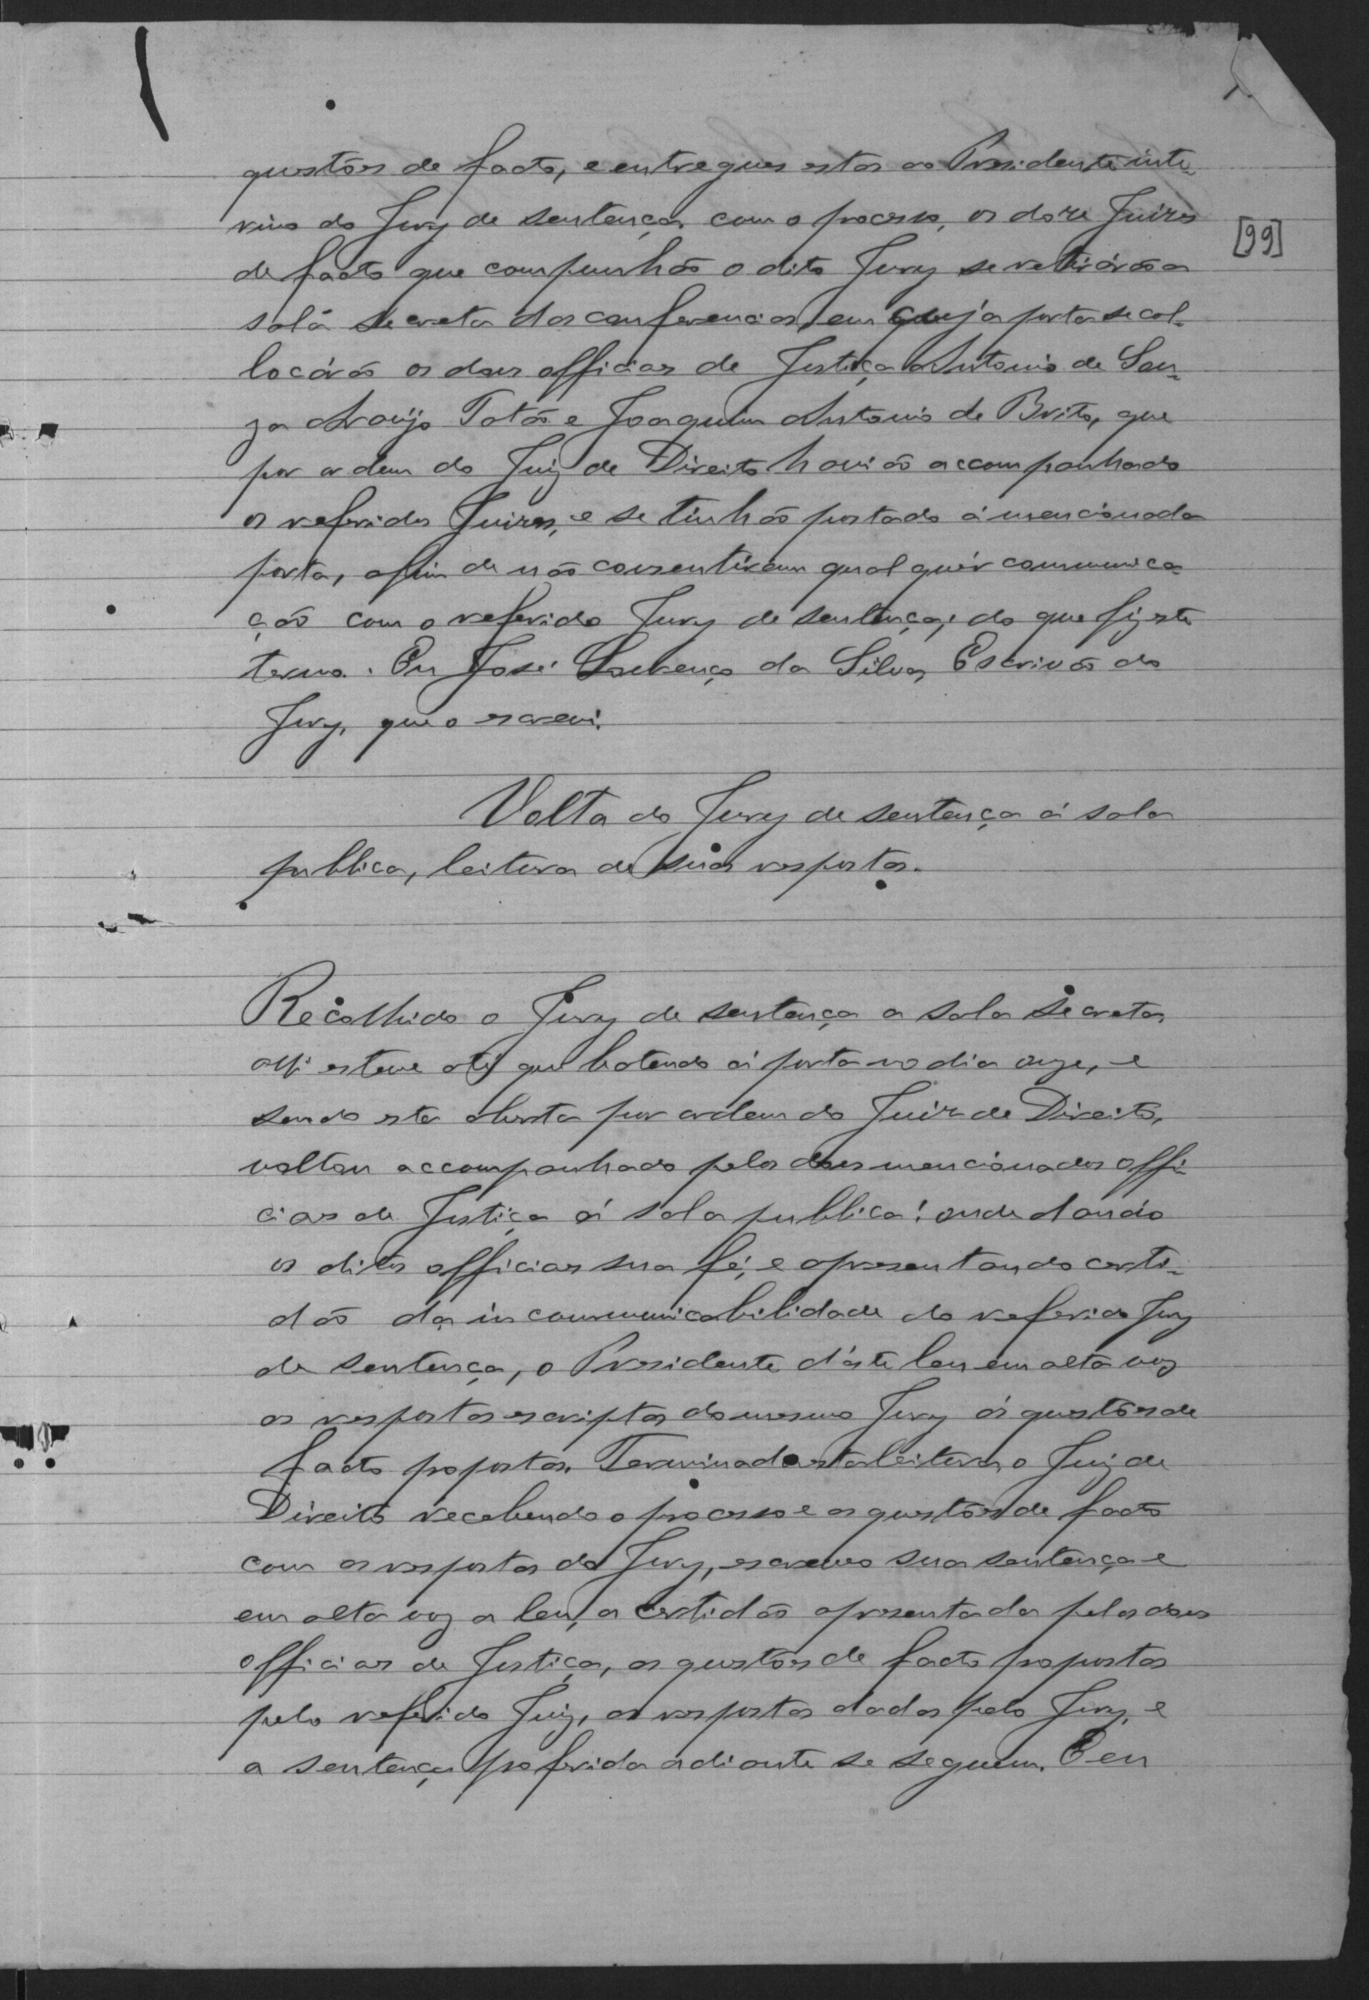 questões de facto, e entregues estas ao Presidente inte-
rino do Jury de sentença com o processo, os doze Juizes
[99]
de facto que compunhão o dito Jury se retirárão a
sala secreta das conferencias, em cuja porta se col-
locárão os dous officiaes de Justiça Antonio de Sou-
za Araujo Tatão e Joaquim Antonio de Brito, que
por ordem do Juiz de Direito havião accompanhado
os referidos Juizes, e se tinhão postado á mencionada
porta, afim de não consentirem qualquér communica-
ção com o referido Jury de sentença; do que fiz este
termo. Eu José Lourenço da Silva, Escrivão do
Jury, que o escrevi.
Volta do Jury de sentença á sala
publica, leitura de suas respostas.
Recolhido o Jury de sentença a sala secreta,
alli esteve até que batendo á porta no dia onze, e
sendo esta aberta por ordem do Juiz de Direito,
voltou accompanhado pelos dous mencionados offi-
ciaes de Justiça á sala publica: onde dando
os ditos officiaes sua fé, e apresentando certi-
dão da incommunicabilidade do referido Jury
de sentença, o Presidente d'éste leu em alta voz
as respostas escriptas do mesmo Jury ás questões de
facto propostas. Terminada esta leitura, o Juiz de
Direito recebendo o processo e as questões de facto
com as respostas do Jury, escreveo sua sentença e
em alta voz a leu, a certidão apresentada pelos dous
officiaes de Justiça, as questões de facto propostas
pelo referido Juiz, as respostas dadas pelo Jury, e
a sentença proferida adiante se seguem. E eu